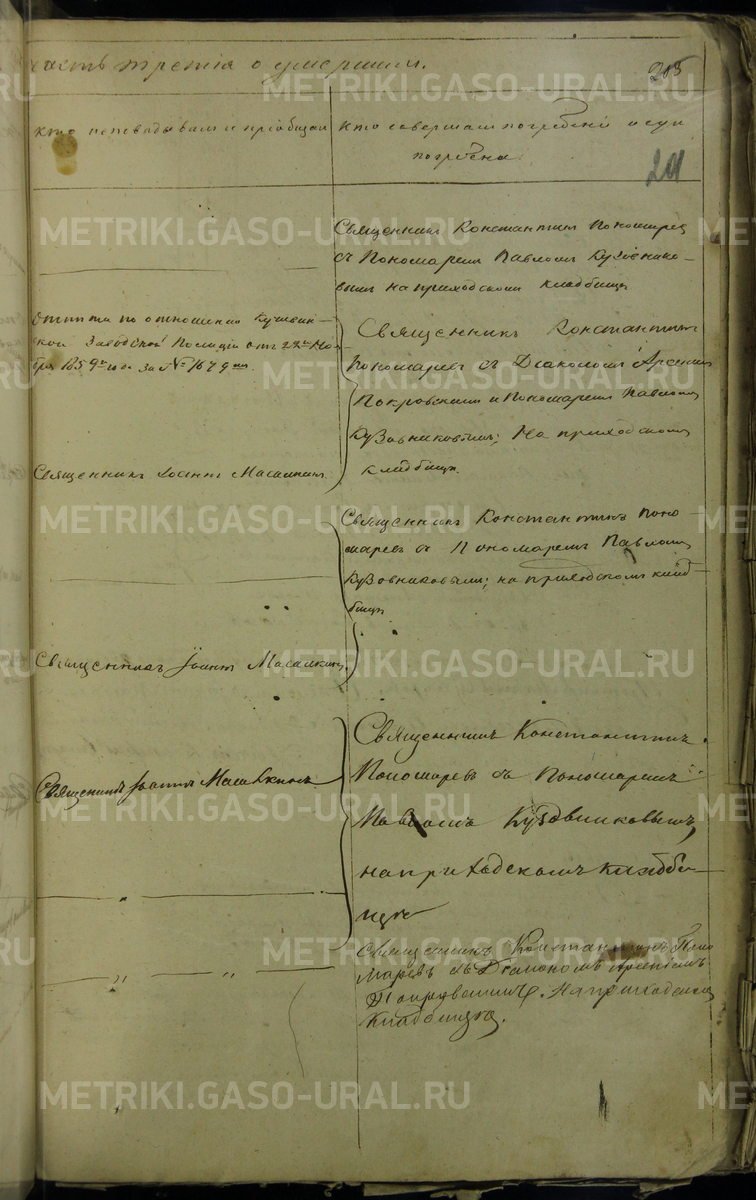 часть третія о умершихъ.
205
кто исповѣдывалъ и пріобщалъ
кто совершалъ погребеніе и гдѣ
погребены
201
Священникъ Константинъ Пономаревъ
съ Пономаремъ Павломъ Кузовнико-
вымъ на приходскомъ кладбищѣ
Отпѣты по отношенію Кушвин-
ской Заводской Полиціи отъ Но-
бря 1859 года за № 1679
Священникъ Іоаннъ Масалкинъ.
Священникъ Константинъ
Пономаревъ съ Діакономъ Арсеніемъ
Покровскимъ и Пономаремъ Павломъ
Кузовниковымъ; На приходскомъ
кладбищѣ.
Священникъ Константинъ Поно-
маревъ съ Пономаремъ Павломъ
Кузовниковымъ; на приходскомъ клад-
бищѣ
Священникъ Іоаннъ Масалкинъ.
Священникъ Іоаннъ Масалкинъ
Священникъ Константинъ
Пономаревъ съ Пономаремъ
Павломъ Кузовниковымъ,
на приходскомъ кладби-
щѣ
Священникъ Константинъ Поно
маревъ съ Діакономъ Арсеніемъ
Покровскимъ. На приходскомъ
кладбищѣ.
METRIKI.GASO-URAL.RU